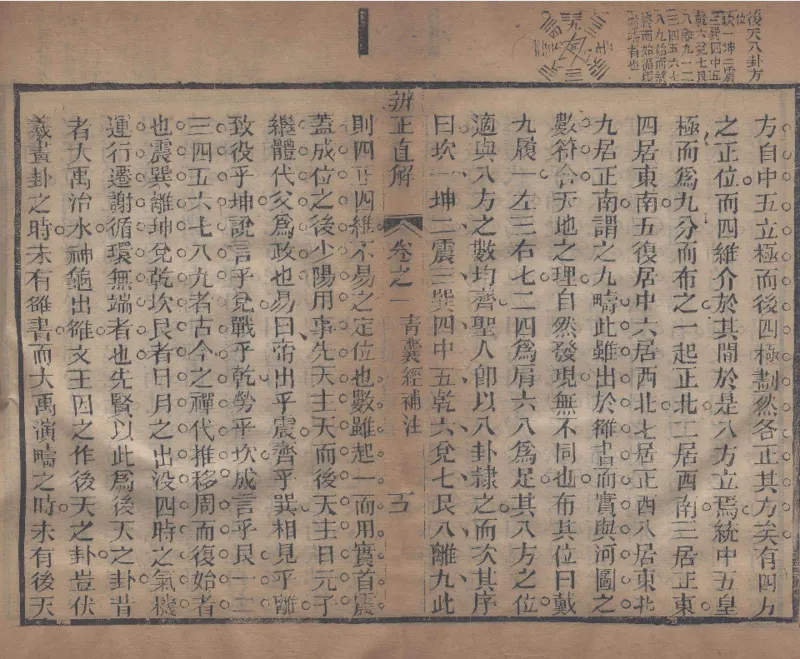 後天八卦方
位
坎一坤二震
三巽四中五
乾六兌七艮
八離九一二
三四五六七
八九始而終
方自中五立極而後四極劃然各正其方矣有四方
之正位而四維介於其間於是八方立焉統中五皇
極而爲九分而布之一起正北二居西南三居正東
四居東南五復居中六居西北七居正西八居東北
九居正南謂之九疇此雖出於雒書而實與河圖之
數符合天地之理自然發現無不同也布其位曰戴
九履一左三右七二四爲肩六八爲足其八方之位
適與八方之數均齊聖人卽以八卦隷之而次其序
曰坎一坤二震三巽四中五乾六兌七艮八離九此
辨正直解 卷之一 青囊經補注
則四正四維不易之定位也數雖起一而用實首震
蓋成位之後少陽用事先天主天而後天主日元子
繼體代父爲政也易曰帝出乎震齊乎巽相見乎離
致役乎坤說言乎兌戰乎乾勞乎坎成言乎艮一二
三四五六七八九者古今之禪代推移周而復始者
也震巽離坤兌乾坎艮者日月之出沒四時之氣機
運行遷謝循環無端者也先賢以此爲後天之卦昔
者大禹治水神龜出雒文王因之作後天之卦豈伏
羲畫卦之時未有雒書而大禹演疇之時未有後天